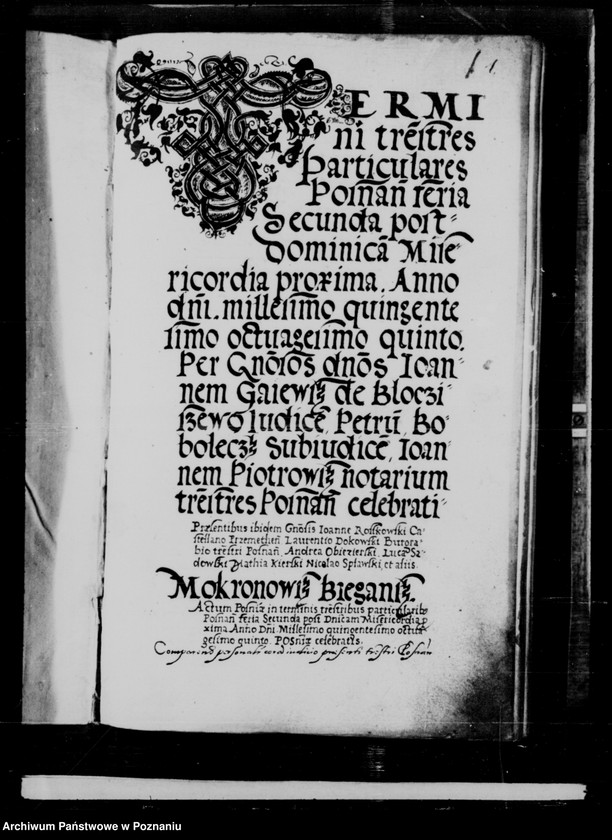 1
TERMI
ni tres̄tres
Particulares
Posnan̄ feria
Secunda post-
Dominicā Mise-
ricordia proxima. Anno
dn̄i. millesimo quingente
simo octuagesimo quinto.
Per Gn̄osos dn̄os Ioan-
nem Gaiewsꝫ de Bloczi-
ssewo Iudicē, Petrū Bo-
boleczꝫ Subiudicē, Ioan-
nem Piotrowsꝫ notarium
tres̄tres Posnan̄ celebrati-
Præsentibus ibidem Gn̄osis Ioanne Rosskowski Ca-
stellano Laurentio Dokowski Burgra-
bio tres̄tri Posnan̄, Andrea Obiezierski, Luca Sa-
dowski Mathia Kierski Nicolao Spławski, et aliis.
Mokronowsꝫ Biegansꝫ.
Actum Posniæ in terminis trestribus particularibꝫ
Posnan̄ feria Secunda post Dnicam Misericordia p
xima Anno Dni. Millesimo quingentesimo octua-
gesimo quinto. Posniæ celebratis.
Comparens personaliter coram iudicio præsenti trestri Posnan̄
Archiwum Państwowe w Poznaniu